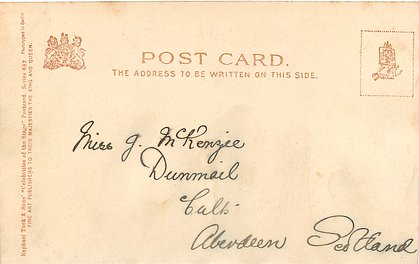 POST CARD.
THE ADDRESS TO BE WRITTEN ON THIS SIDE.
Miss J. McKenzie
Dunmail
Cults
Aberdeen Scotland
Raphael Tuck & Sons' "Celebrities of the Stage" Postcard. Series 682 Photographed in Berlin
FINE ART PUBLISHERS TO THEIR MAJESTIES THE KING AND QUEEN.